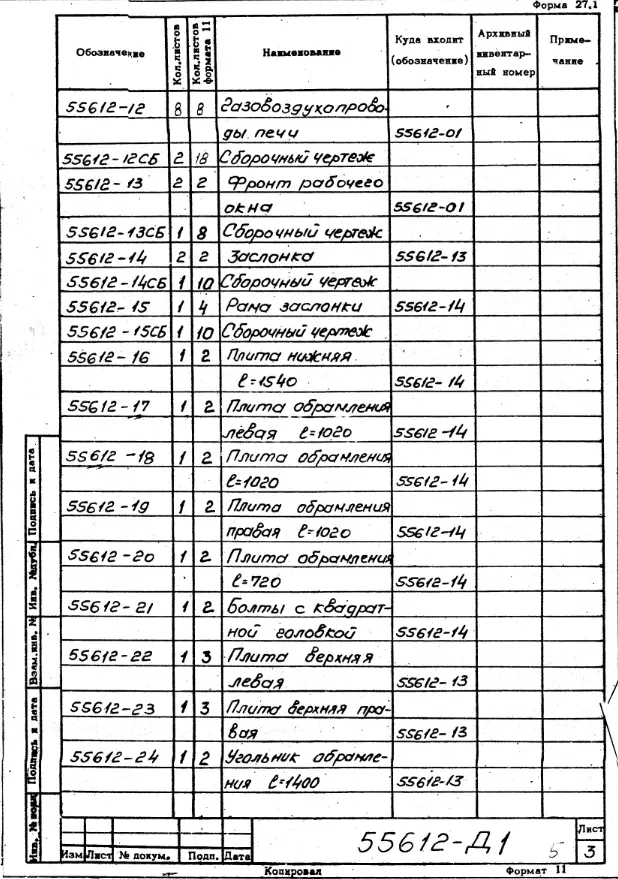 Форма 27.1
Обозначение Кол.листов Кол.листов формата 11 Наименование Куда входит (обозначение) Архивный инвентарный номер Примечание
55612-12 8 8 Газовоздухопрово-
ды печи 55612-01
55612-12СБ 2 18 Сборочный чертеж
55612-13 2 2 Фронт рабочего
окна 55612-01
55612-13СБ 1 8 Сборочный чертеж
55612-14 2 2 Заслонка 55612-13
55612-14СБ 1 10 Сборочный чертеж
55612-15 1 4 Рама заслонки 55612-14
55612-15СБ 1 10 Сборочный чертеж
55612-16 1 2 Плита нижняя
ℓ=1540 55612-14
55612-17 1 2 Плита обрамления
левая ℓ=1020 55612-14
55612-18 1 2 Плита обрамления
ℓ=1020 55612-14
55612-19 1 2 Плита обрамления
правая ℓ=1020 55612-14
55612-20 1 2 Плита обрамления
ℓ=720 55612-14
55612-21 1 2 Болты с квадрат-
ной головкой 55612-14
55612-22 1 3 Плита верхняя
левая 55612-13
55612-23 1 3 Плита верхняя пра-
вая 55612-13
55612-24 1 2 Угольник обрамле-
ния ℓ=1400 55612-13
Подпись и дата
Инв. №дубл.
Взам.инв. №
Подпись и дата
Инв. № подл.
Изм Лист № докум. Подп. Дата
55612-Д1 5
Лист
3
Копировал Формат 11